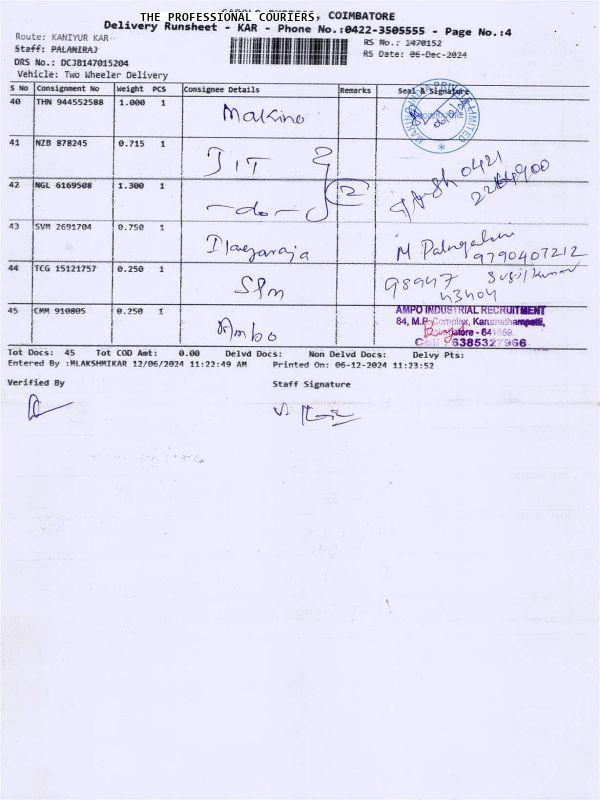 THE PROFESSIONAL COURIERS, COIMBATORE
Delivery Runsheet - KAR - Phone No.:0422-3505555 - Page No.:4
Route: KANIYUR KAR
RS No.: 1470152
Staff: PALANIRAJ
RS Date: 06-Dec-2024
DRS No.: DCJB147015204
Vehicle: Two Wheeler Delivery
S No Consignment No Weight PCS Consignee Details Remarks Seal & Signature
40 THN 944552588 1.000 1 Makino
41 NZB 878245 0.715 1 JIT
0421
42 NGL 6169508 1.300 1 -do- 2
43 SVM 2691704 0.750 1 Ilayaraja M
9790407212
44 TCG 15121757 0.250 1 SPM 98947
43404
45 CMM 910805 0.250 1 Ambo
AMPO INDUSTRIAL RECRUITMENT
84, M.P. Complex, Karumathampatti,
6385327966
Tot Docs: 45 Tot COD Amt: 0.00 Delvd Docs: Non Delvd Docs: Delvy Pts:
Entered By :MLAKSHMIKAR 12/06/2024 11:22:49 AM Printed On: 06-12-2024 11:23:52
Verified By Staff Signature